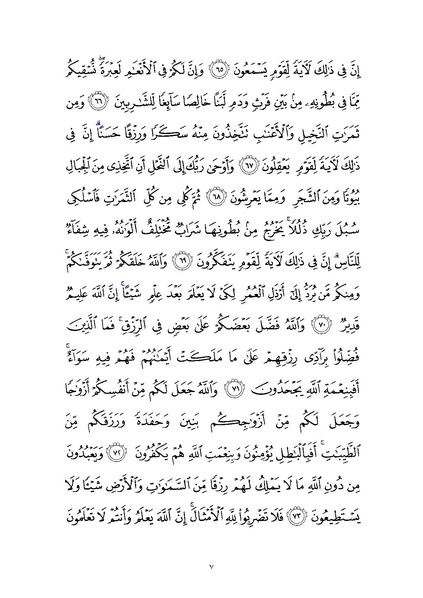 إِنَّ فِي ذَٰلِكَ لَآيَةً لِّقَوْمٍ يَسْمَعُونَ ﴿٦٥﴾ وَإِنَّ لَكُمْ فِي الْأَنْعَامِ لَعِبْرَةً ۖ نُّسْقِيكُم
مِّمَّا فِي بُطُونِهِ مِن بَيْنِ فَرْثٍ وَدَمٍ لَّبَنًا خَالِصًا سَائِغًا لِّلشَّارِبِينَ ﴿٦٦﴾ وَمِن
ثَمَرَاتِ النَّخِيلِ وَالْأَعْنَابِ تَتَّخِذُونَ مِنْهُ سَكَرًا وَرِزْقًا حَسَنًا ۗ إِنَّ فِي
ذَٰلِكَ لَآيَةً لِّقَوْمٍ يَعْقِلُونَ ﴿٦٧﴾ وَأَوْحَىٰ رَبُّكَ إِلَى النَّحْلِ أَنِ اتَّخِذِي مِنَ الْجِبَالِ
بُيُوتًا وَمِنَ الشَّجَرِ وَمِمَّا يَعْرِشُونَ ﴿٦٨﴾ ثُمَّ كُلِي مِن كُلِّ الثَّمَرَاتِ فَاسْلُكِي
سُبُلَ رَبِّكِ ذُلُلًا ۚ يَخْرُجُ مِن بُطُونِهَا شَرَابٌ مُّخْتَلِفٌ أَلْوَانُهُ فِيهِ شِفَاءٌ
لِّلنَّاسِ ۗ إِنَّ فِي ذَٰلِكَ لَآيَةً لِّقَوْمٍ يَتَفَكَّرُونَ ﴿٦٩﴾ وَاللَّهُ خَلَقَكُمْ ثُمَّ يَتَوَفَّاكُمْ ۚ
وَمِنكُم مَّن يُرَدُّ إِلَىٰ أَرْذَلِ الْعُمُرِ لِكَيْ لَا يَعْلَمَ بَعْدَ عِلْمٍ شَيْئًا ۚ إِنَّ اللَّهَ عَلِيمٌ
قَدِيرٌ ﴿٧٠﴾ وَاللَّهُ فَضَّلَ بَعْضَكُمْ عَلَىٰ بَعْضٍ فِي الرِّزْقِ ۚ فَمَا الَّذِينَ
فُضِّلُوا بِرَادِّي رِزْقِهِمْ عَلَىٰ مَا مَلَكَتْ أَيْمَانُهُمْ فَهُمْ فِيهِ سَوَاءٌ ۚ
أَفَبِنِعْمَةِ اللَّهِ يَجْحَدُونَ ﴿٧١﴾ وَاللَّهُ جَعَلَ لَكُم مِّنْ أَنفُسِكُمْ أَزْوَاجًا
وَجَعَلَ لَكُم مِّنْ أَزْوَاجِكُم بَنِينَ وَحَفَدَةً وَرَزَقَكُم مِّنَ
الطَّيِّبَاتِ ۚ أَفَبِالْبَاطِلِ يُؤْمِنُونَ وَبِنِعْمَتِ اللَّهِ هُمْ يَكْفُرُونَ ﴿٧٢﴾ وَيَعْبُدُونَ
مِن دُونِ اللَّهِ مَا لَا يَمْلِكُ لَهُمْ رِزْقًا مِّنَ السَّمَاوَاتِ وَالْأَرْضِ شَيْئًا وَلَا
يَسْتَطِيعُونَ ﴿٧٣﴾ فَلَا تَضْرِبُوا لِلَّهِ الْأَمْثَالَ ۚ إِنَّ اللَّهَ يَعْلَمُ وَأَنتُمْ لَا تَعْلَمُونَ
٧